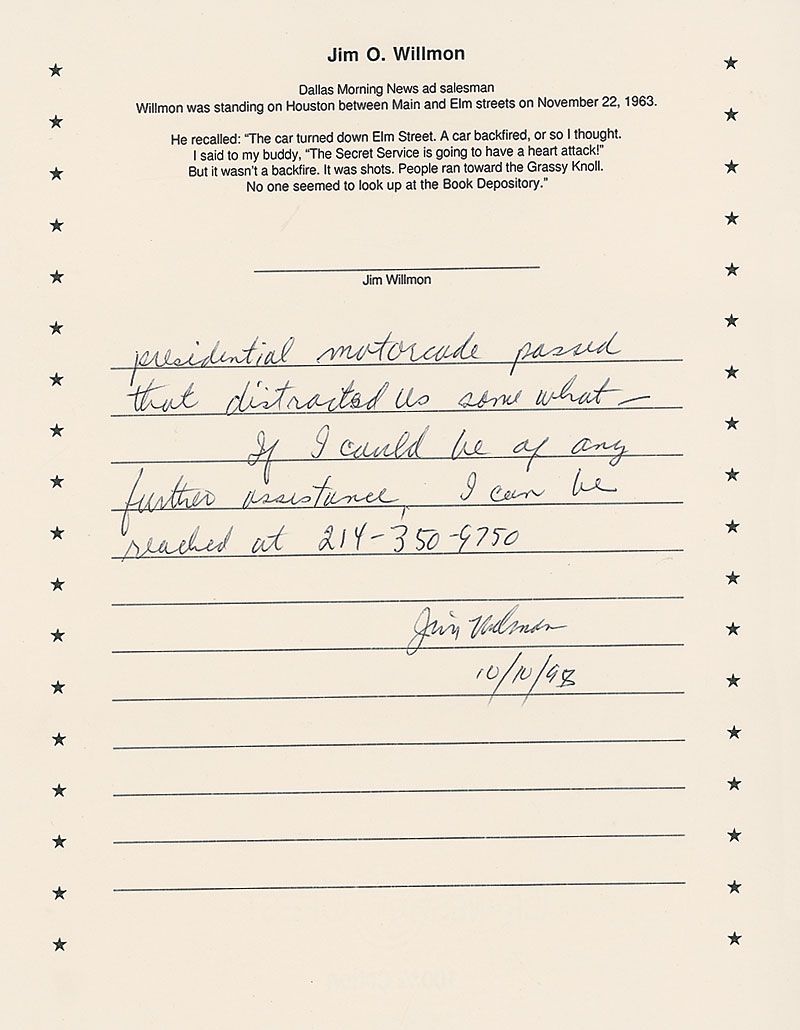 Jim O. Willmon
Dallas Morning News ad salesman
Willmon was standing on Houston between Main and Elm streets on November 22, 1963.
He recalled: "The car turned down Elm Street. A car backfired, or so I thought.
I said to my buddy, "The Secret Service is going to have a heart attack!"
But it wasn't a backfire. It was shots. People ran toward the Grassy Knoll.
No one seemed to look up at the Book Depository."
Jim Willmon
presidential motorcade passed
that distracted us somewhat—
If I could be of any
further assistance, I can be
reached at 214-350-9750
Jim Willmon
10/10/98